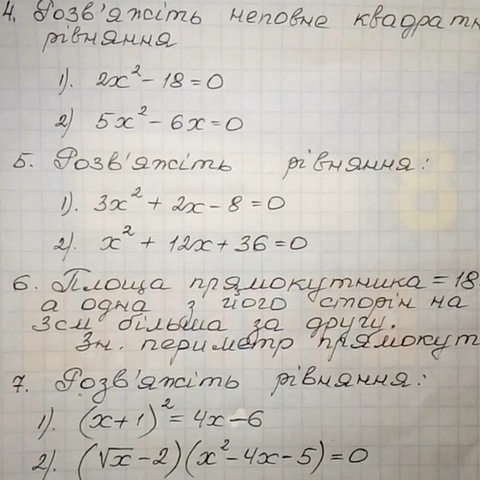 4. Розв'яжіть неповне квадратн
рівняння
1). 2x² - 18 = 0
2) 5x² - 6x = 0
5. Розв'яжіть рівняння:
1). 3x² + 2x - 8 = 0
2). x² + 12x + 36 = 0
6. Площа прямокутника = 18
а одна з його сторін на
3см більша за другу.
Зн. периметр прямокут
7. Розв'яжіть рівняння:
1). (x+1)² = 4x - 6
2). (√x - 2)(x² - 4x - 5) = 0